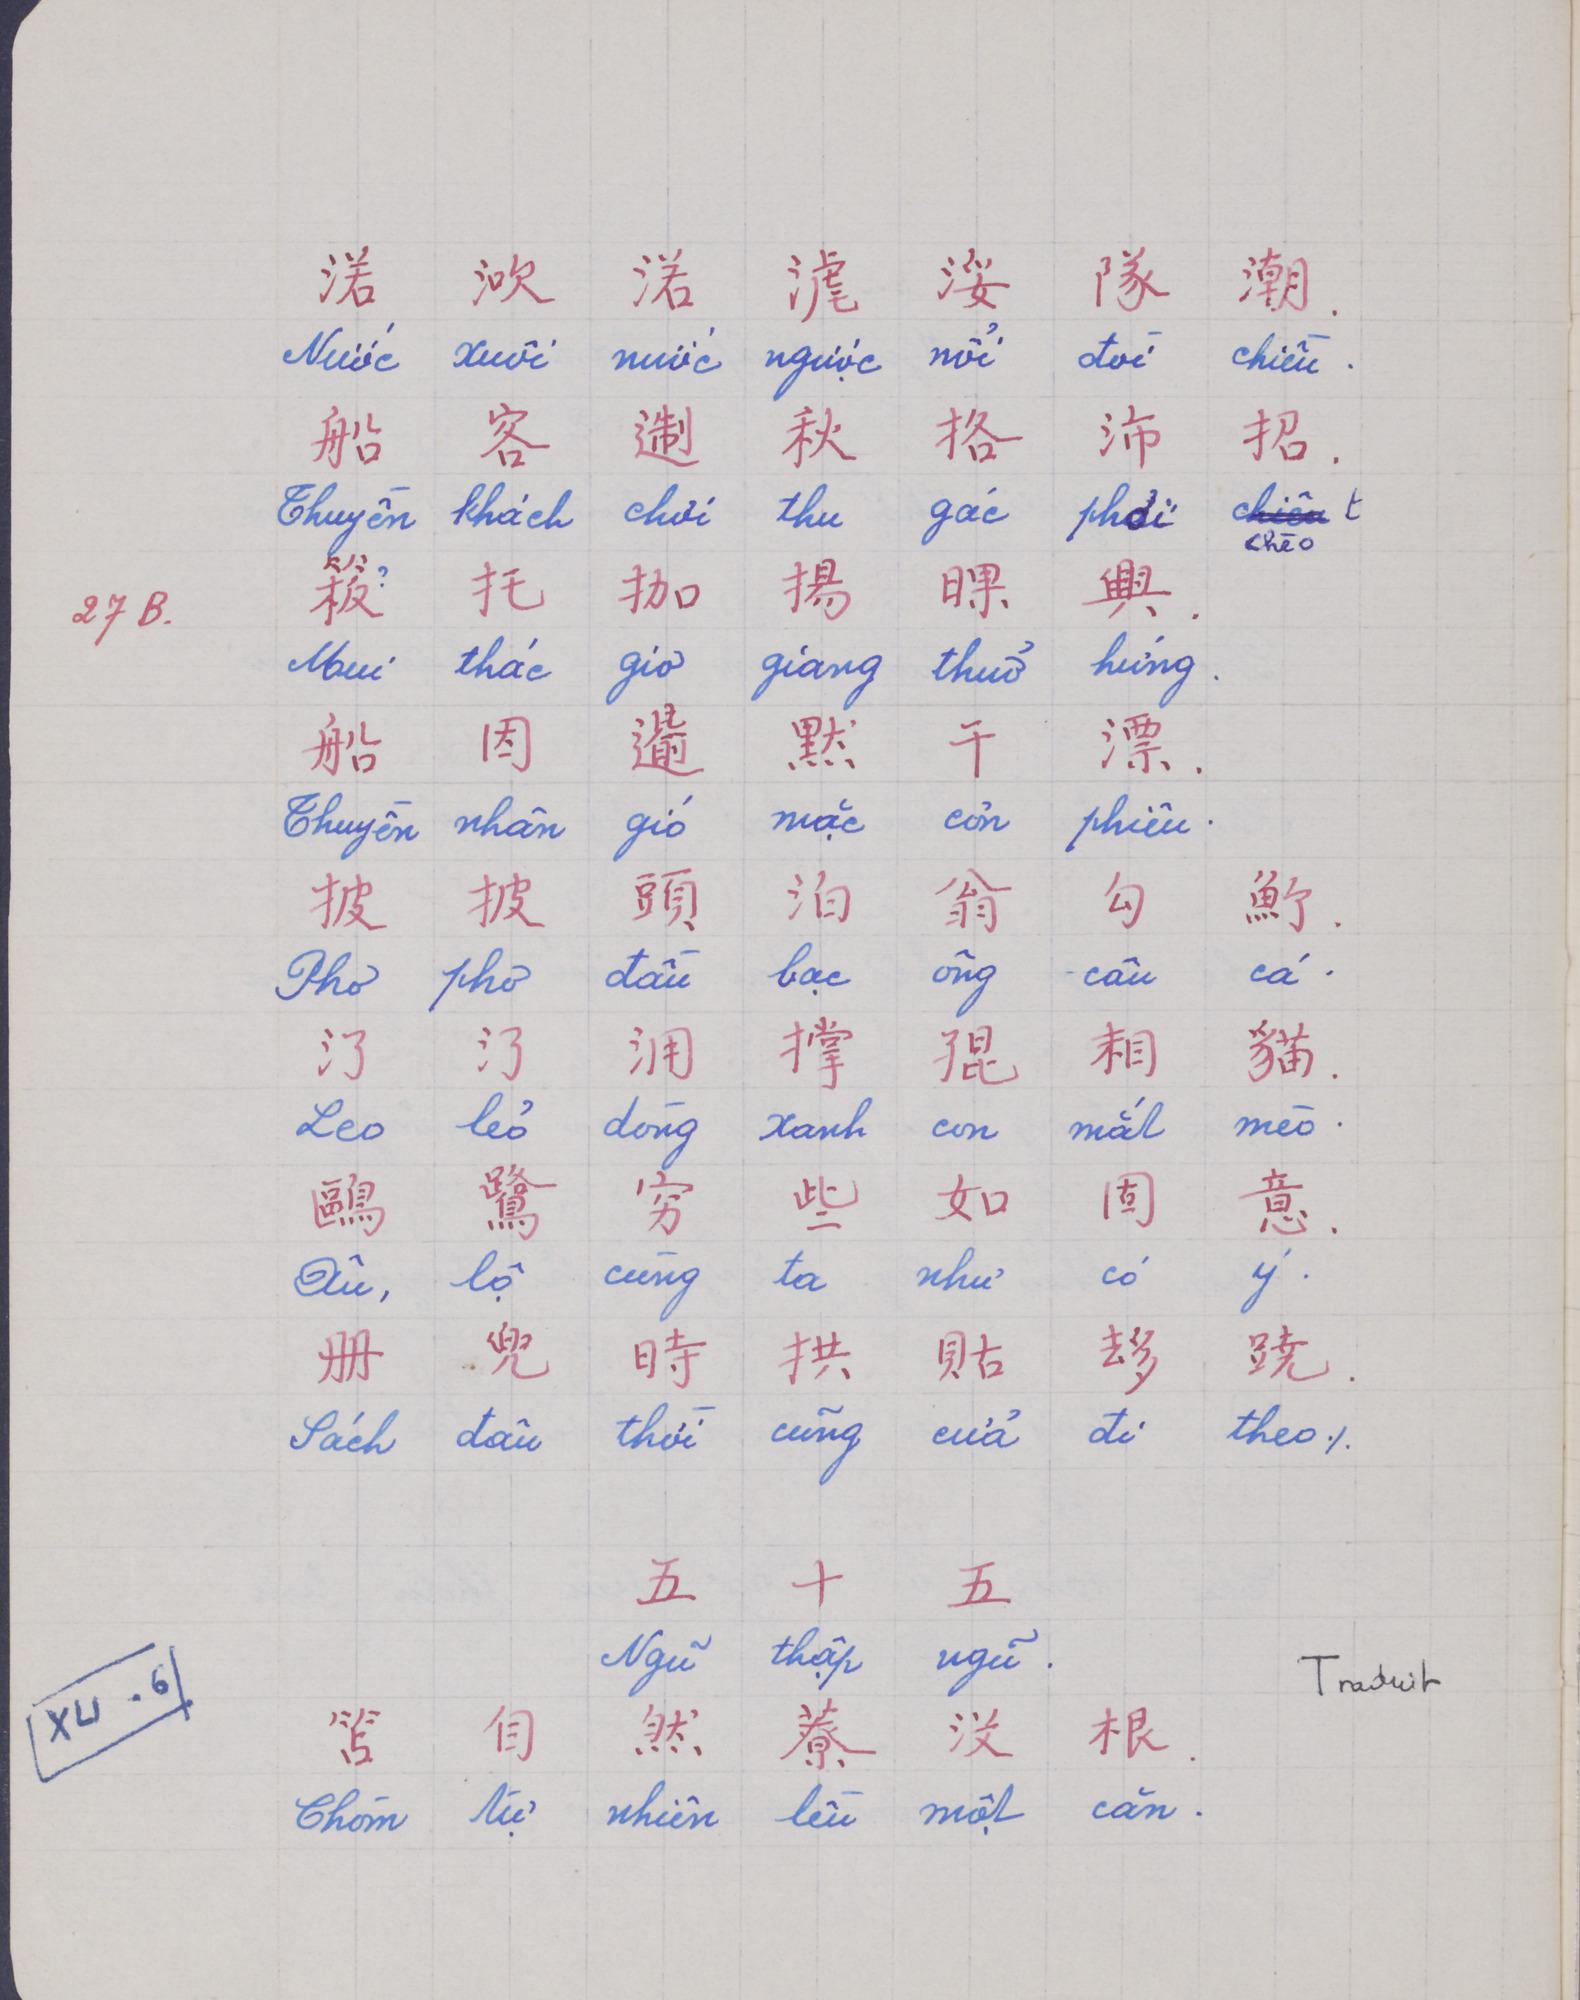 渃 㳄 渃 滮 浽 隊 潮.
Nước xuôi nước ngược nổi đòi chiều.
船 客 𨔾 秋 挌 沛 招.
Thuyền khách chơi thu gác phơi chiêu t
chèo
托 拁 揚 䁨 興.
27 B.
Mui thác giơ giang thuở hứng.
船 因 默 干 漂.
Thuyền nhân gió mặc cơn phiêu.
披 披 頭 泊 翁 勾 𩵜.
Phơ phơ đầu bạc ông câu cá.
汈 汈 泂 撑 猑 相 貓.
Leo lẻo dòng xanh con mắt mèo.
鷗 鷺 穷 些 如 固 意.
Âu, lộ cùng ta như có ý.
册 兜 時 拱 貼 𠫾 蹺.
Sách đâu thời cũng của đi theo ./.
五 十 五
Ngũ thập ngũ.
Traduit
XLI . 6
笘 自 然 藔 没 根.
Chòm tự nhiên lều một căn.